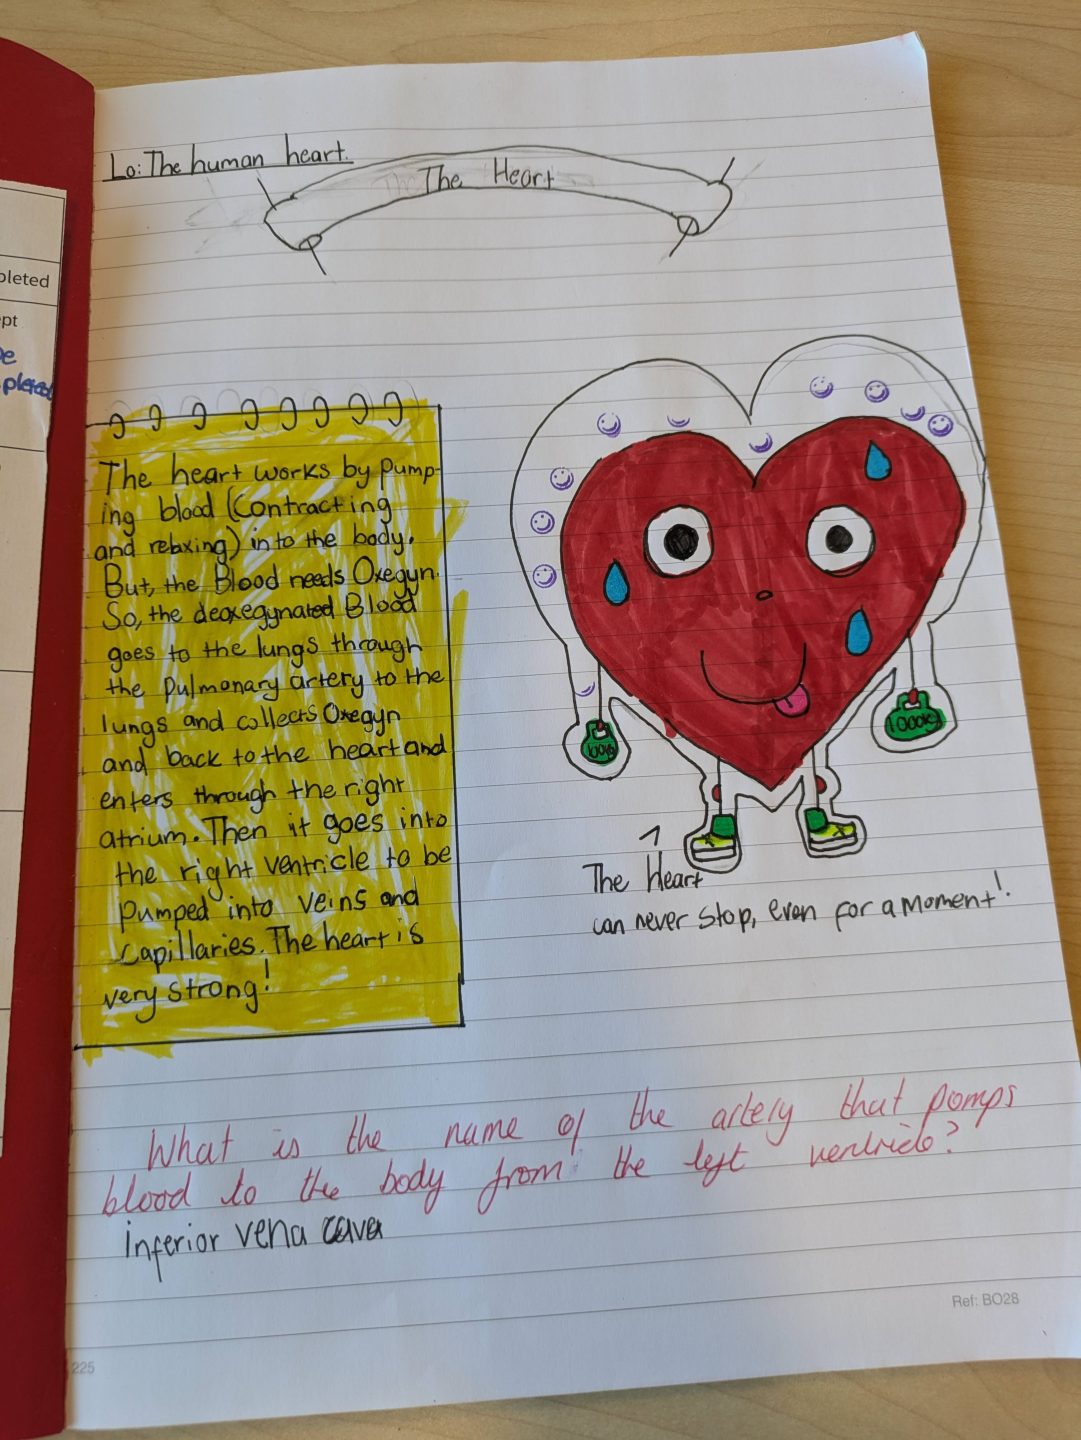 Lo: The human heart.
The Heart
pleted
pt
pleted
The heart works by pump-
ing blood (contracting
and relaxing) into the body.
But, the Blood needs Oxegyn.
So, the deoxegynated Blood
goes to the lungs through
the pulmonary artery to the
lungs and collects Oxegyn
and back to the heart and
enters through the right
atrium. Then it goes into
the right ventricle to be
pumped into veins and
capillaries. The heart is
very strong!
100kg
The Heart
can never stop, even for a moment!
What is the name of the artery that pomps
blood to the body from the left ventricle?
inferior vena cava
Ref: BO28
225